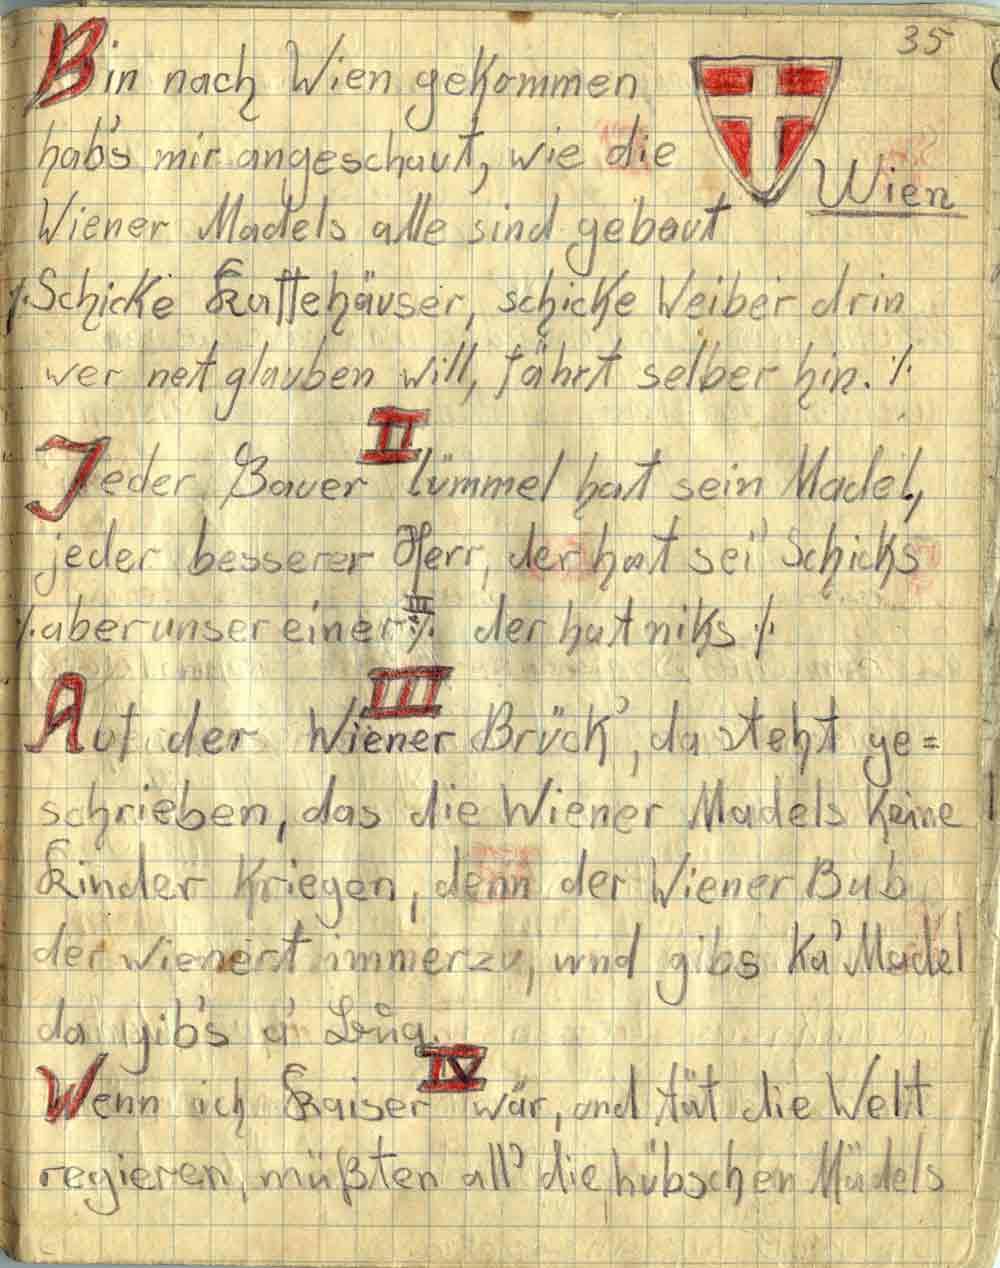 35
Bin nach Wien gekommen
hab's mir angeschaut, wie die
Wien
Wiener Madels alle sind gebaut
·/. Schicke Kaffehäuser, schicke Weiber drin
wer net glauben will, fährt selber hin. ·/.
II
Jeder Bauer lümmel hat sein Madel,
jeder besserer Herr, der hat sei' Schicks
III
·/. aber unser einer ·/. der hat niks ·/.
III
Auf der Wiener Brück', da steht ge=
schrieben, das die Wiener Madels keine
Kinder kriegen, denn der Wiener Bub
der wienert immerzu, und gibs ka' Madel
da gib's a'
IV
Wenn ich Kaiser wär, und tät die Welt
regieren, müßten all' die hübschen Mädels